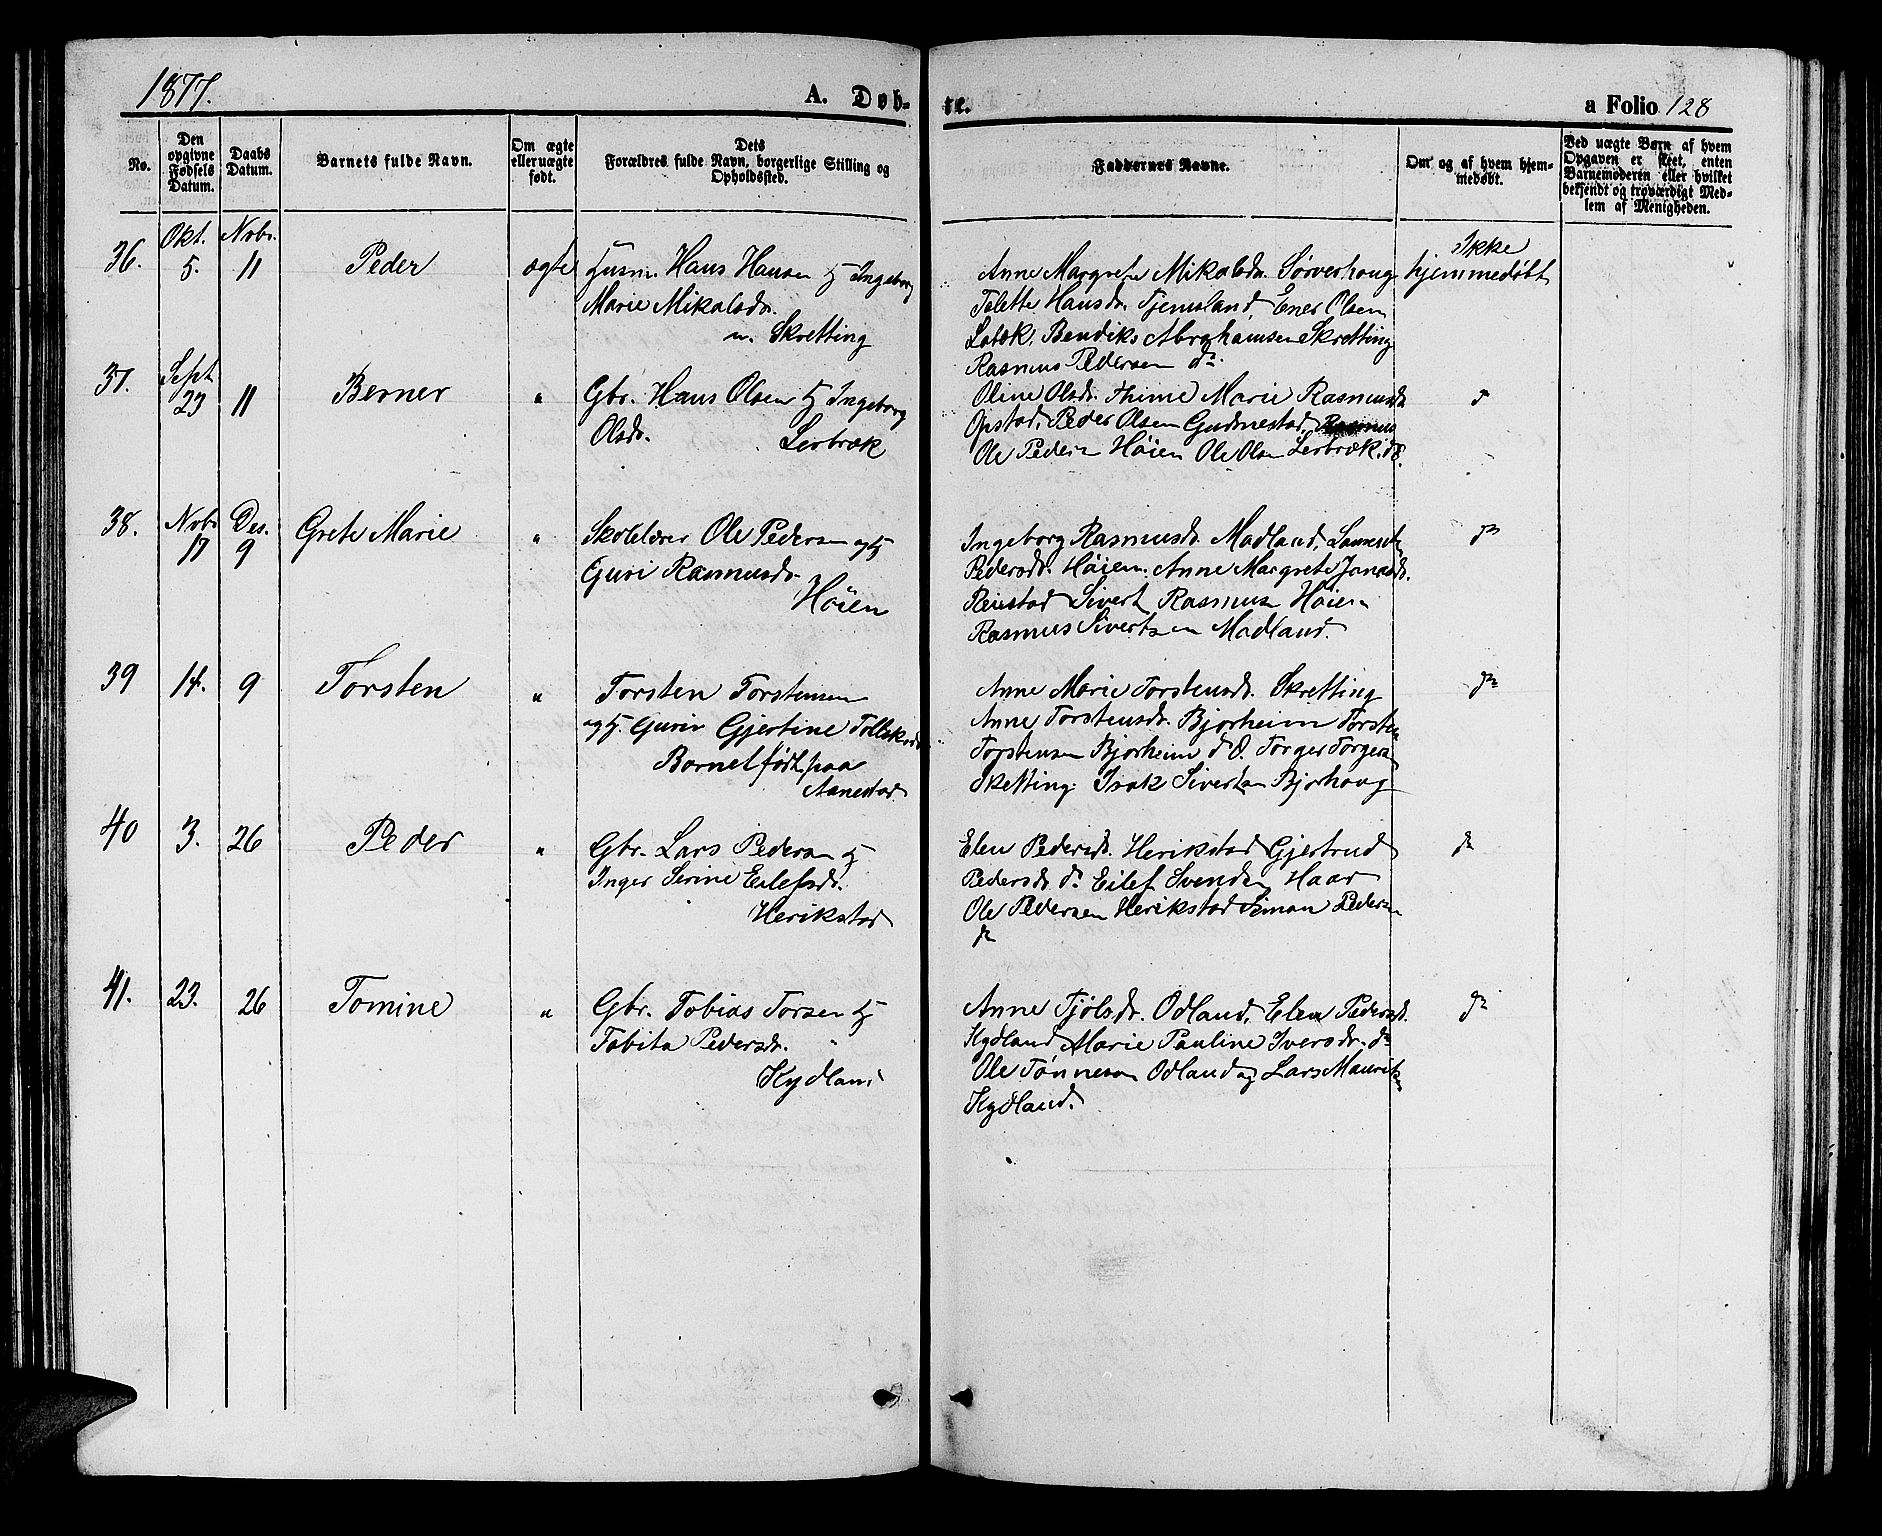 1877. A. Døb- te. a Folio 128
No.
Den opgivne Fødsels Datum.
Daabs Datum.
Barnets fulde Navn.
Om ægte eller uægte født.
Dets Forældres fulde Navn, borgerlige Stilling og Opholdssted.
Faddernes Navne.
Om og af hvem hjemmedøbt.
Ved uægte Børn af hvem Opgaven er skeet, enten Barnemoderen eller hvilket bekjendt og troværdigt Medlem af Menigheden.
36. Okt. 5. Nvbr. 11 Peder ægte Husm. Hans Hansen og Ingeborg
Marie Mikalsdr.
Skretting
Anne Margrete Mikalsdr. Sørverhoug
Tolette Hansdr. Tjemsland, Ener Olsen
Bendiks Abrahamsen Skretting
Rasmus Pedersen do.
Ikke
hjemmedøbt
37. Sept 23 11 Berner " Gbr. Hans Olsen og Ingeborg
Olsdr. Lerbræk
Oline Olsdr. Thime Marie Rasmusdr
Opstad, Peder Olsen Gudmestad,
Ole Pedersen Høien Ole Olsen Lerbræk. d8.
38. Nvbr 17 Des. 9 Grete Marie " Skolelærer Ole Pedersen og
Guri Rasmusdr.
Høien
Ingeborg Rasmusdr. Madland,
Pedersdr. Høien. Anne Margrete Jonasdr.
Reiestad Sivert Rasmusen Høien
Rasmus Sivertsen Madland.
do
39 14. 9 Torsten " Torsten Torstensen
og Guriv Gjertine
Barnet født paa
Aanestad
Anne Marie Torstensdr. Skretting
Anne Torstensdr. Bjorheim Torsten
Torstensen Bjorheim d8. Torger Torgersen
Sketting. Isak Sivertsen Bjorhoug
do
40 3. 26 Peder " Gbr. Lars Pedersen og
Inger Serine Eilefsdr.
Herikstad
Elen Pedersdr. Herikstad Gjertrud
Pedersdr do. Eilef Svendsen Haar
Ole Pedersen Herikstad Simon Pedersen
do
do
41. 23. 26 Tomine " Gbr. Tobias Torsen og
Tabita Pedersdr.
Kydland
Anne Tjølsdr. Odland, Elen Pedersdr.
Kydland Marie Pauline Iversdr. do
Ole Tønnesen Odland og Lars Mauritsen
Kydland.
do